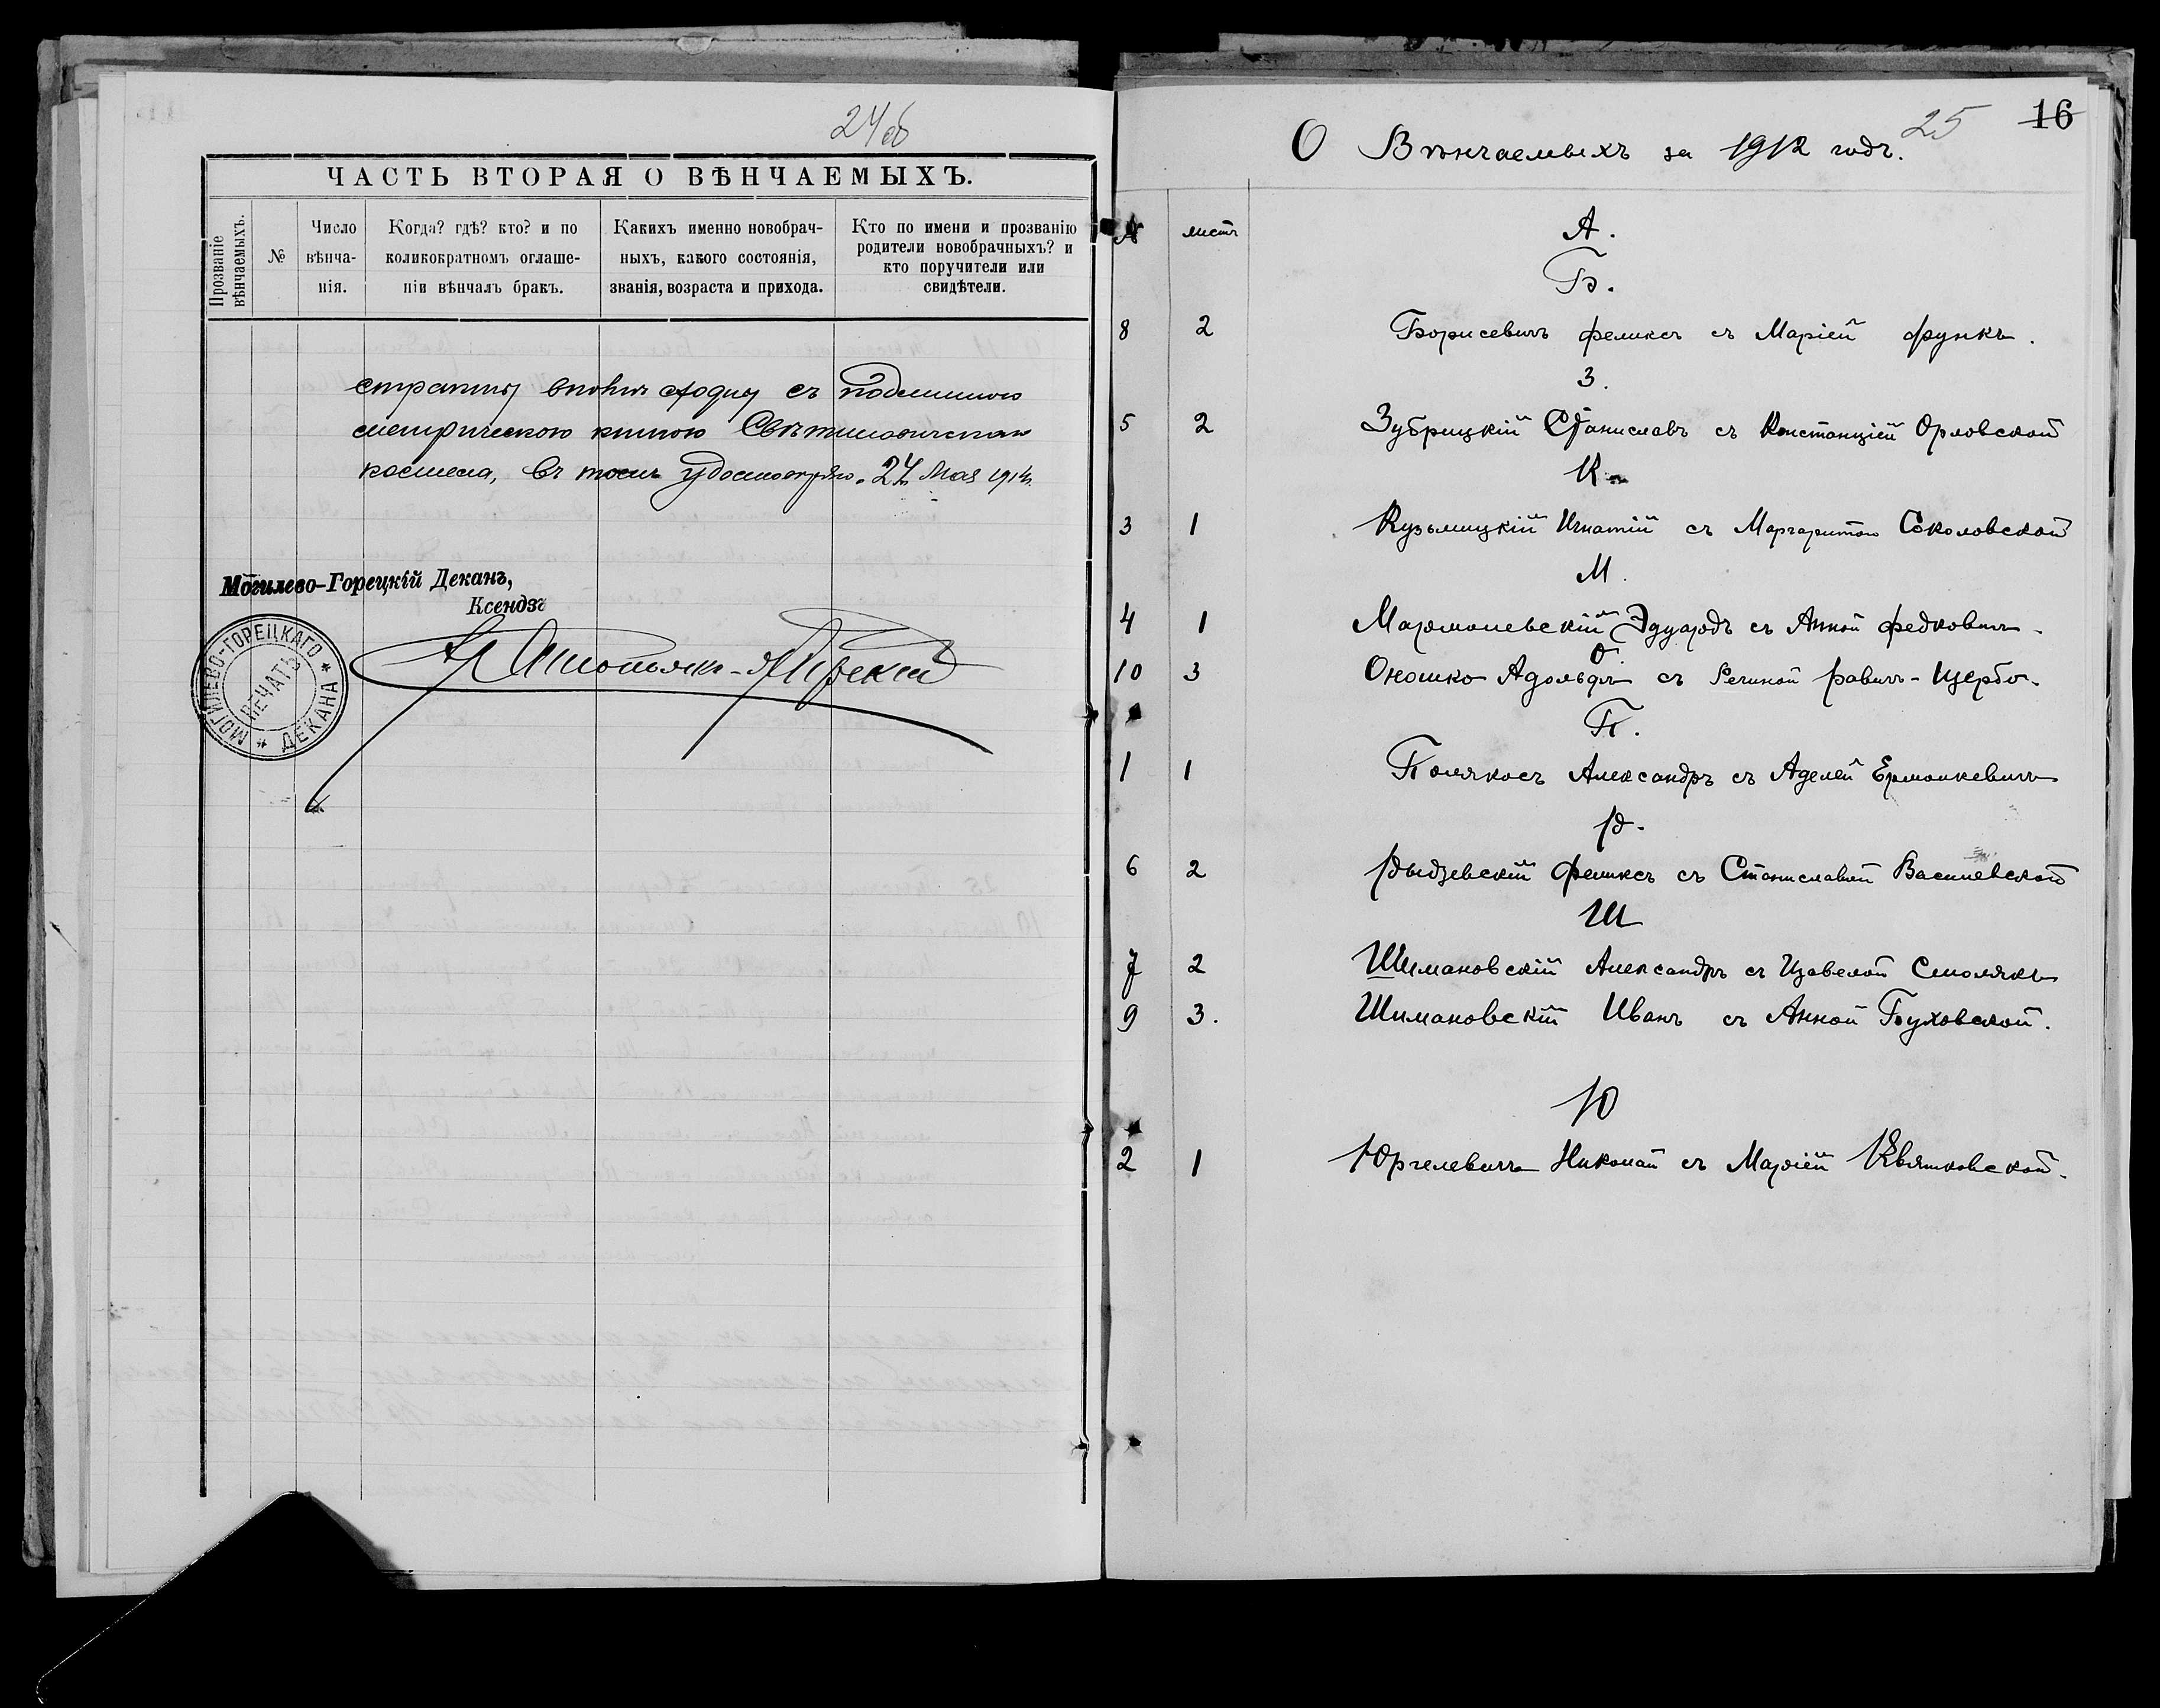 24об
ЧАСТЬ ВТОРАЯ О ВѢНЧАЕМЫХЪ.
Прозваніе вѣнчаемыхъ.
№
Число вѣнча-
нія.
Когда? гдѣ? кто? и по
коликократномъ оглаше-
ніи вѣнчалъ бракъ.
Какихъ именно новобрач-
ныхъ, какого состоянія,
званія, возраста и прихода.
Кто по имени и прозванію
родители новобрачныхъ? и
кто поручители или
свидѣтели.
вполнѣ сходну съ
метрическою книгою
костела, въ томъ 24 Мая 1914.
Могилево-Горецкій Деканъ,
Ксендзъ
МОГИЛЕВО-ГОРЕЦКАГО * ДЕКАНА *
ПЕЧАТЬ
25 16
О Вѣнчаемыхъ за 1912 годъ.
№ листъ
А.
Б.
8 2 Борисевичъ Феликсъ съ Маріей Функъ.
З.
5 2 Зубрицкій Станиславъ съ Констанціей Орловской
К.
3 1 Кузьмицкій Игнатій съ Маргаритою Соколовской
М.
4 1 Эдуардъ съ Анной Федковичъ.
О.
10 3 Оношко Адольфъ съ Региной Равичъ-Щербо.
П.
1 1 Александръ съ Аделей
Р.
6 2 Рыдзевскій Феликсъ съ Станиславой Василевской
Ш
7 2 Шимановскій Александръ съ Изавелой Смолякъ
9 3. Шимановскій Иванъ съ Анной Буховской.
Ю
2 1 Юргелевичъ Николай съ Маріей Квятковской.